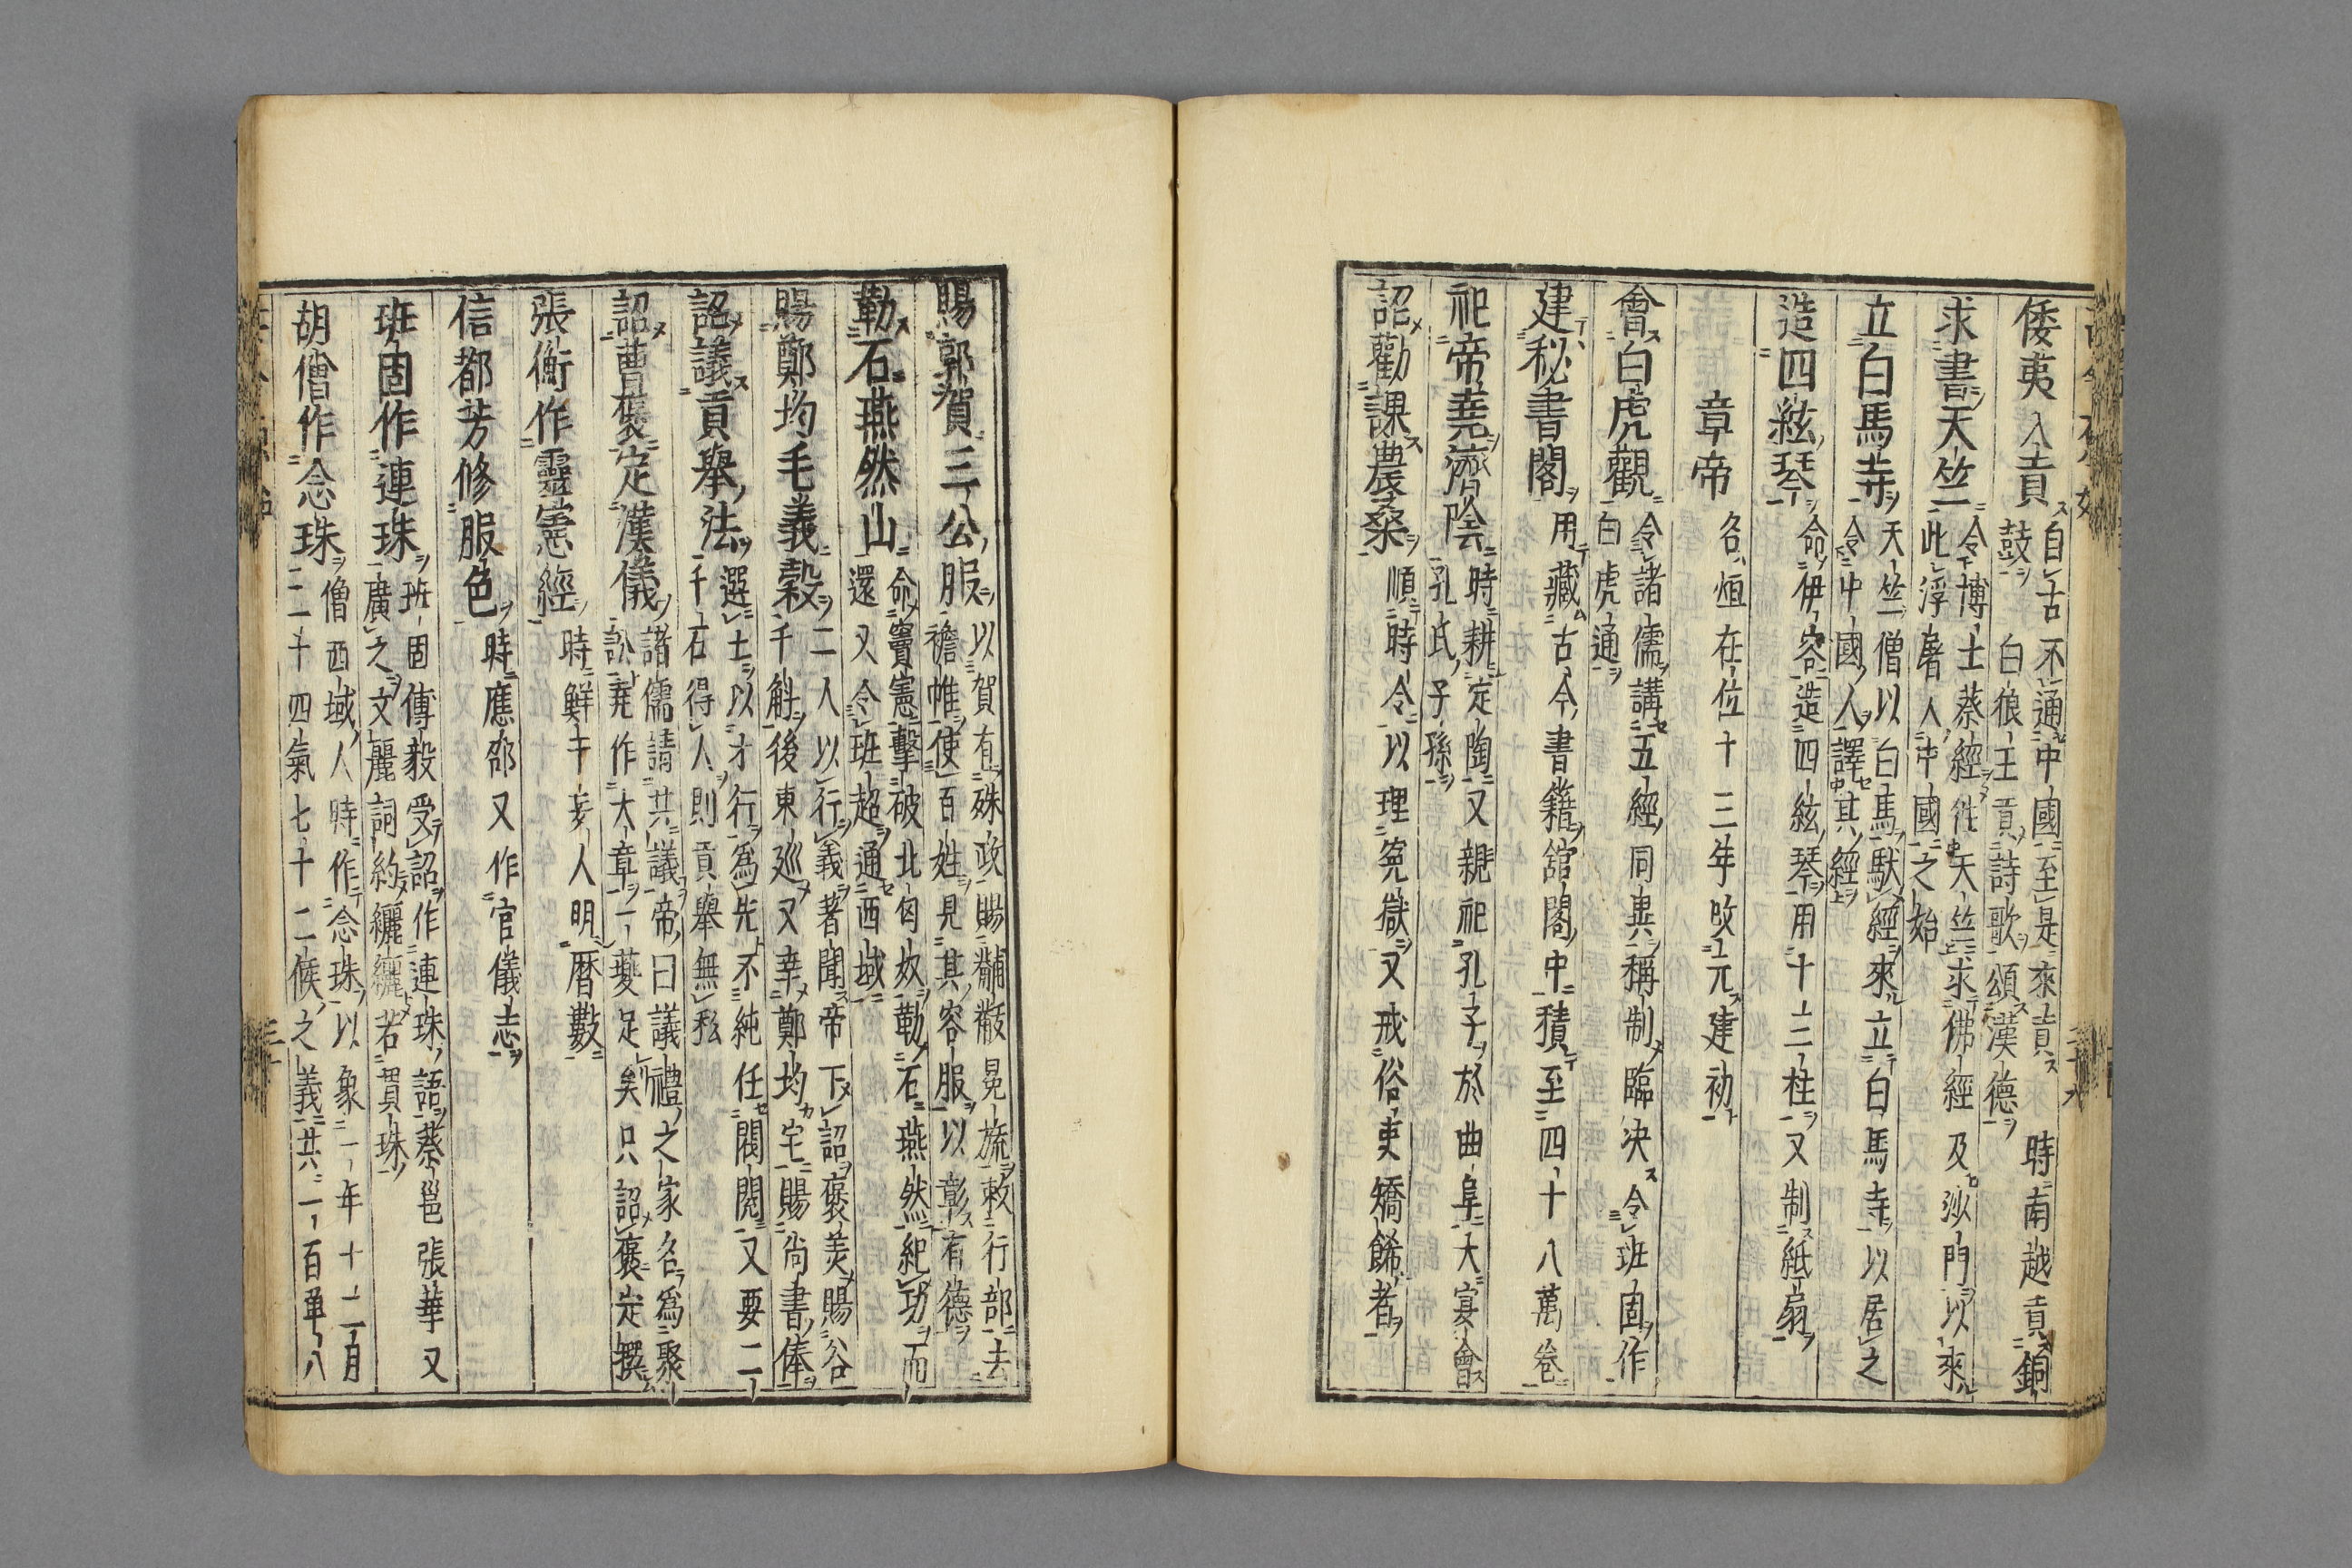 倭夷入貢 自古不通中國至是來貢 時南越貢銅
鼓 白狼王貢詩歌頌漢德
求書天竺 令博士蔡經往天竺求佛經及沙門以來
此浮屠人中國之始
立白馬寺 天竺僧以白馬馱經來立白馬寺以居之
令中國人譯其經
造四絃琴 命伊容造四絃琴用十三柱又制紙扇
章帝 名烜在位十三年改元建初
會白虎觀 令諸儒講五經同異稱制臨決令班固作
白虎通
建秘書閣 用藏古今書籍舘閣中積至四十八萬卷
祀帝堯濟陰 時耕定陶又親祀孔子於曲阜大宴會
孔氏子孫
詔勸課農桑 順時令以理寃獄又戒俗吏矯餙者
賜郭賀三公服 以賀有殊政賜黼黻冕旒敕行部去
襜帷使百姓見其容服以彰有德
勒石燕然山 命竇憲擊破北匈奴勒石燕然紀功而
還又令班超通西域
賜鄭均毛義穀 二人以行義著聞帝下詔褒美賜谷
千斛後東廵又幸鄭均宅賜尚書俸
詔議貢舉法 選士以才行爲先不純任閥閱又要二
千石得人則貢舉無私
詔曹褒定漢儀 諸儒請共議帝曰議禮之家名爲聚
訟堯作大章一夔足矣只詔褒定撰
張衡作靈憲經 時鮮于妄人明曆數
信都芳修服色 時應邵又作官儀志
班固作連珠 班固傅毅受詔作連珠語蔡邕張華又
廣之文麗詞約纚纚若貫珠
胡僧作念珠 僧西域人時作念珠以象一年十二月
二十四氣七十二候之義共一百單八